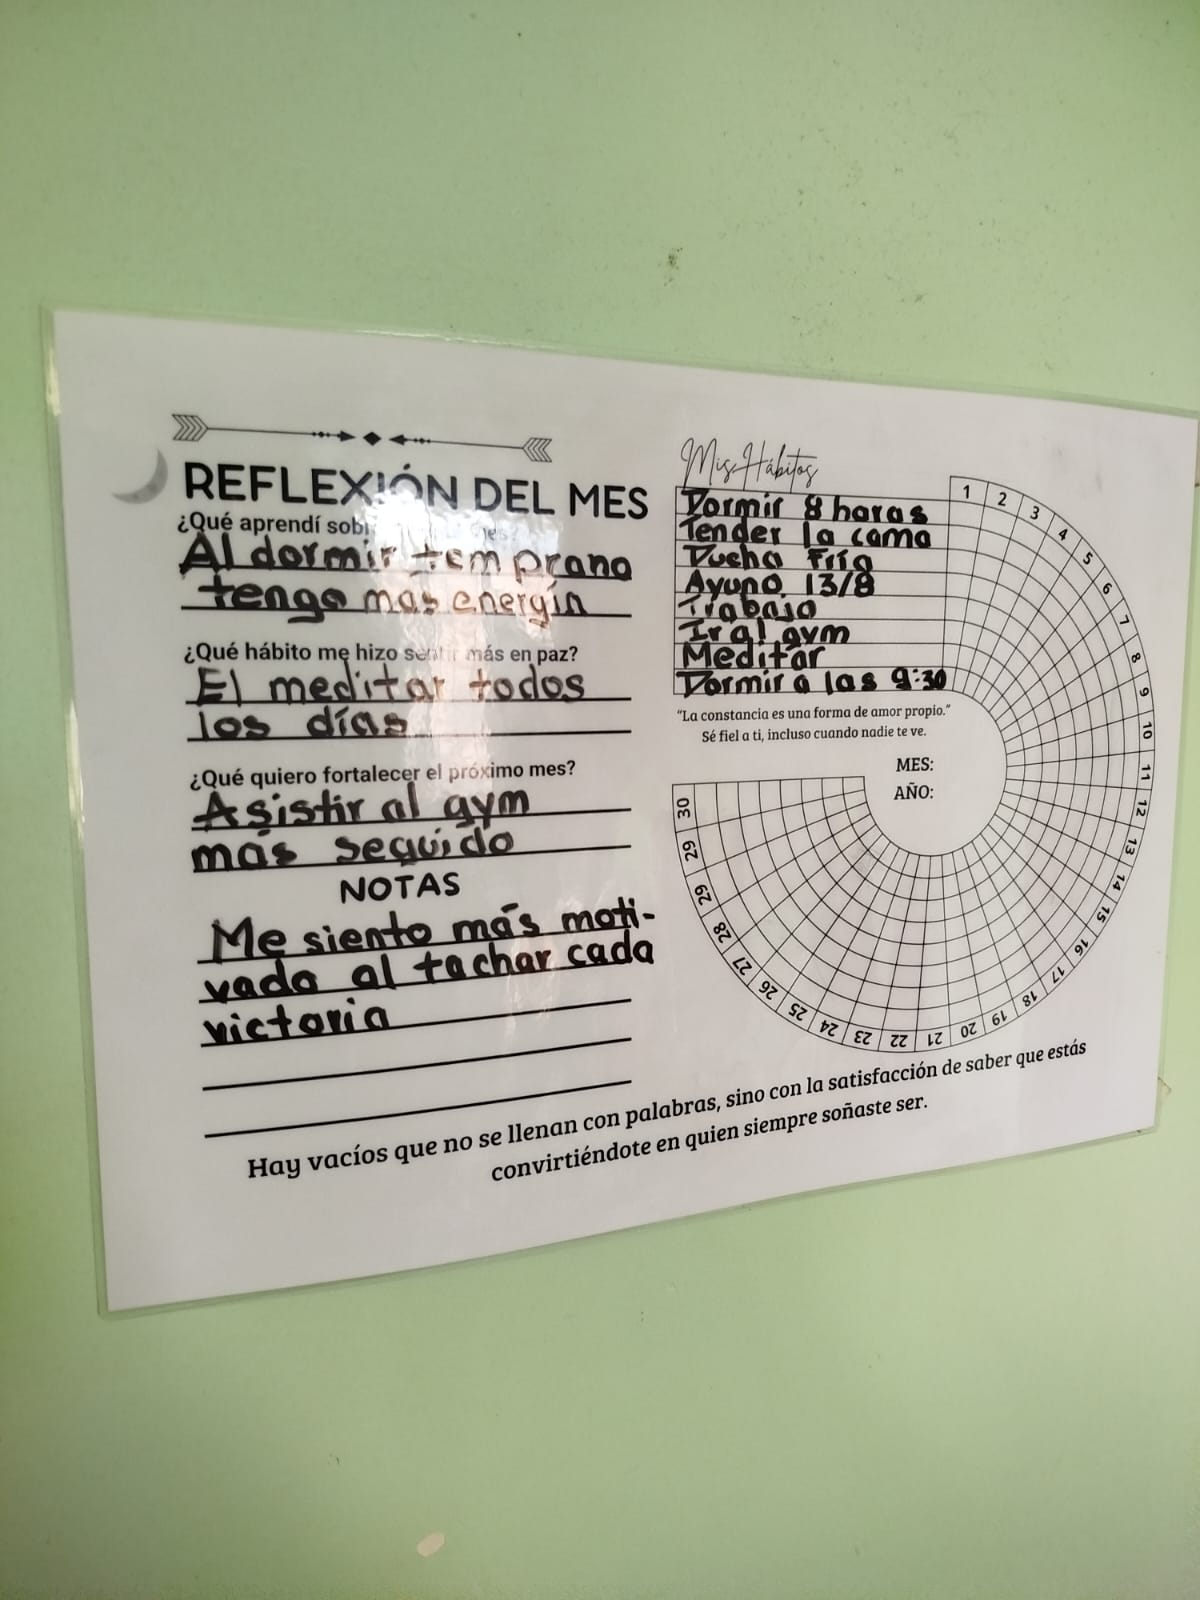 REFLEXIÓN DEL MES
¿Qué aprendí
Al dormir temprano
tengo mas energía
¿Qué hábito me hizo sentir más en paz?
El meditar todos
los días
¿Qué quiero fortalecer el próximo mes?
Asistir al gym
más seguido
NOTAS
Me siento más moti-
vado al tachar cada
victoria
Mis Hábitos
Dormir 8 horas
Tender la cama
Ducha Fría
Ayuno 13/8
Trabajo
Ir al gym
Meditar
Dormir a las 9:30
"La constancia es una forma de amor propio."
Sé fiel a ti, incluso cuando nadie te ve.
MES:
AÑO:
1 2 3 4 5 6 7 8 9 10 11 12 13 14 15 16 17 18 19 20 21 22 23 24 25 26 27 28 29 29 30
Hay vacíos que no se llenan con palabras, sino con la satisfacción de saber que estás
convirtiéndote en quien siempre soñaste ser.